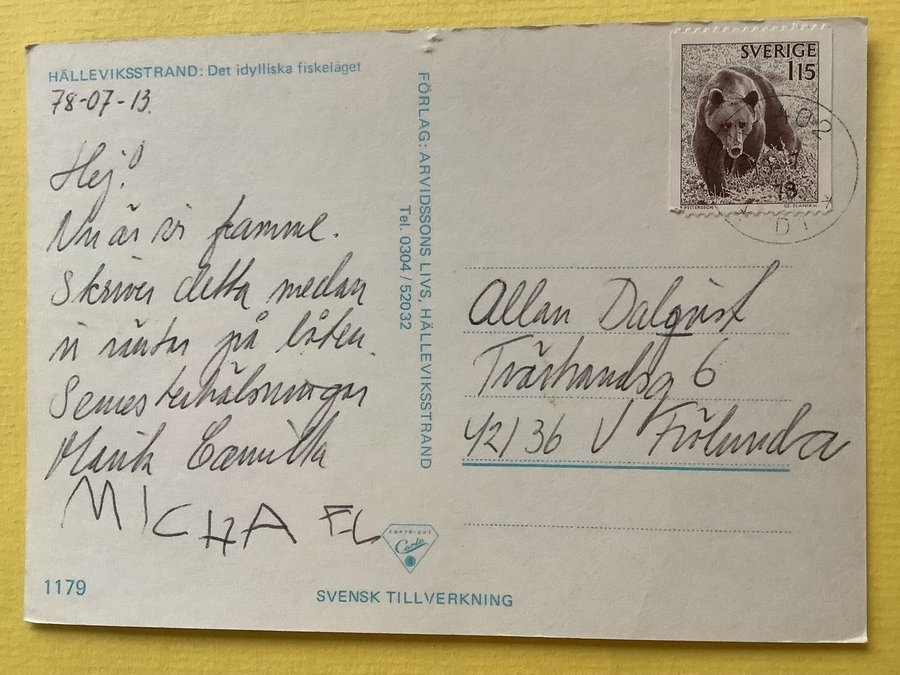 HÄLLEVIKSSTRAND: Det idylliska fiskeläget
78-07-13.
Hej!
Nu är vi framme.
Skriver detta medan
vi väntar på båten.
Semesterhälsningar
Marita Camilla
MICHAEL
1179
FÖRLAG: ARVIDSSONS LIVS, HÄLLEVIKSSTRAND
Tel. 0304/52032
COPYRIGHT
SVENSK TILLVERKNING
SVERIGE
115
78
Allan Dalqvist
Tvärhandsg 6
421 36 V Frölunda